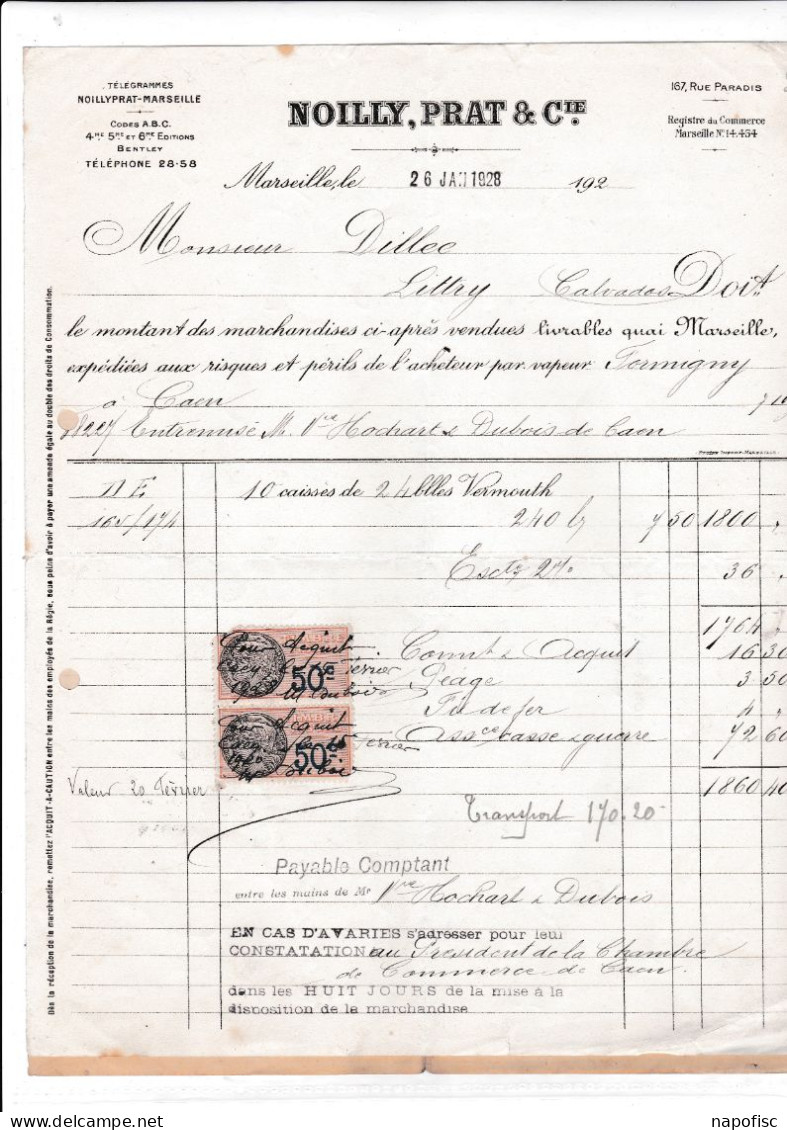 TÉLÉGRAMMES
NOILLYPRAT-MARSEILLE
CODES A.B.C.
4me 5me ET 6me EDITIONS
BENTLEY
TÉLÉPHONE 28-58
NOILLY, PRAT & CIE.
167, RUE PARADIS
Registre du Commerce
Marseille No 14.454
Marseille, le 26 JAN 1928 192
Monsieur Dillee
Littry Calvados Doit
le montant des marchandises ci-après vendues livrables quai Marseille,
expédiées aux risques et périls de l'acheteur par vapeur Formigny
à Caen
18227 Entremise M. Vve Hochart & Dubois de Caen
10 caisses de 24 blles Vermouth
165/174 240 b 7 50 1800 "
Escte 2% 36 "
1764 "
Connt & Acquit 16 30
Péage 3 50
Fil de fer 4 "
Assce casse & guerre 72 60
1860 40
Valeur 20 Février
Transport 170.20
Pour Acquit
50c
Pour Acquit
50c
Payable Comptant
entre les mains de Mr Vve Hochart & Dubois
EN CAS D'AVARIES s'adresser pour leur
CONSTATATION au Président de la Chambre
de Commerce de Caen.
dans les HUIT JOURS de la mise à la
disposition de la marchandise
Dès la réception de la marchandise, remettez l'ACQUIT-A-CAUTION entre les mains des employés de la Régie, sous peine d'avoir à payer une amende égale au double des droits de Consommation.
www.delcampe.net
napofisc